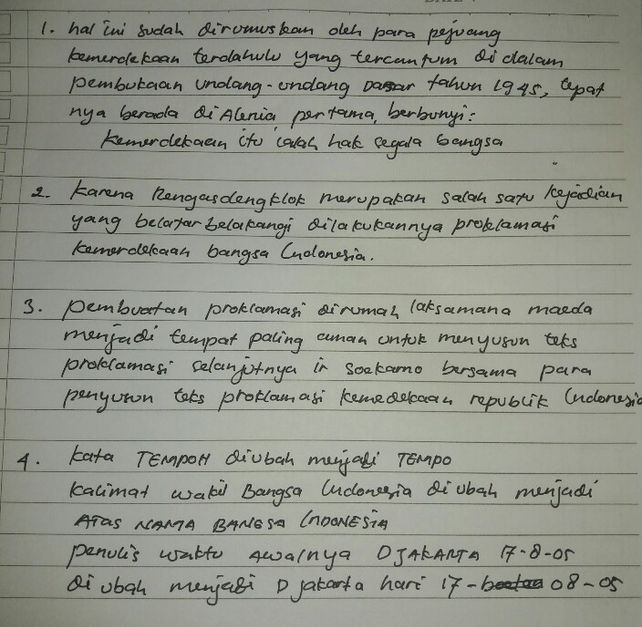 1. hal ini sudah dirumuskan oleh para pejuang
kemerdekaan terdahulu yang tercantum di dalam
pembukaan undang-undang Dasar tahun 1945, tepat
nya berada di Alenia pertama, berbunyi:
kemerdekaan itu ialah hak segala bangsa
2. Karena Rengasdengklok merupakan salah satu kejadian
yang belatar belakangi dilakukannya proklamasi
kemerdekaan bangsa Indonesia.
3. pembuatan proklamasi dirumah laksamana maeda
menjadi tempat paling aman untuk menyusun teks
proklamasi selanjutnya ir soekarno bersama para
penyusun teks proklamasi kemedekaan republik Indonesia
4. kata TEMPOH diubah menjadi TEMPO
kalimat wakil Bangsa Indonesia di ubah menjadi
ATAS NAMA BANGSA INDONESIA
penulis waktu awalnya DJAKARTA 17-8-05
di ubah menjadi Djakarta hari 17- 08-05